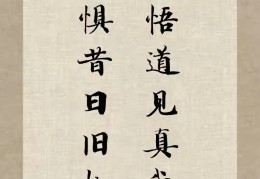 悟道见真
惧昔日旧